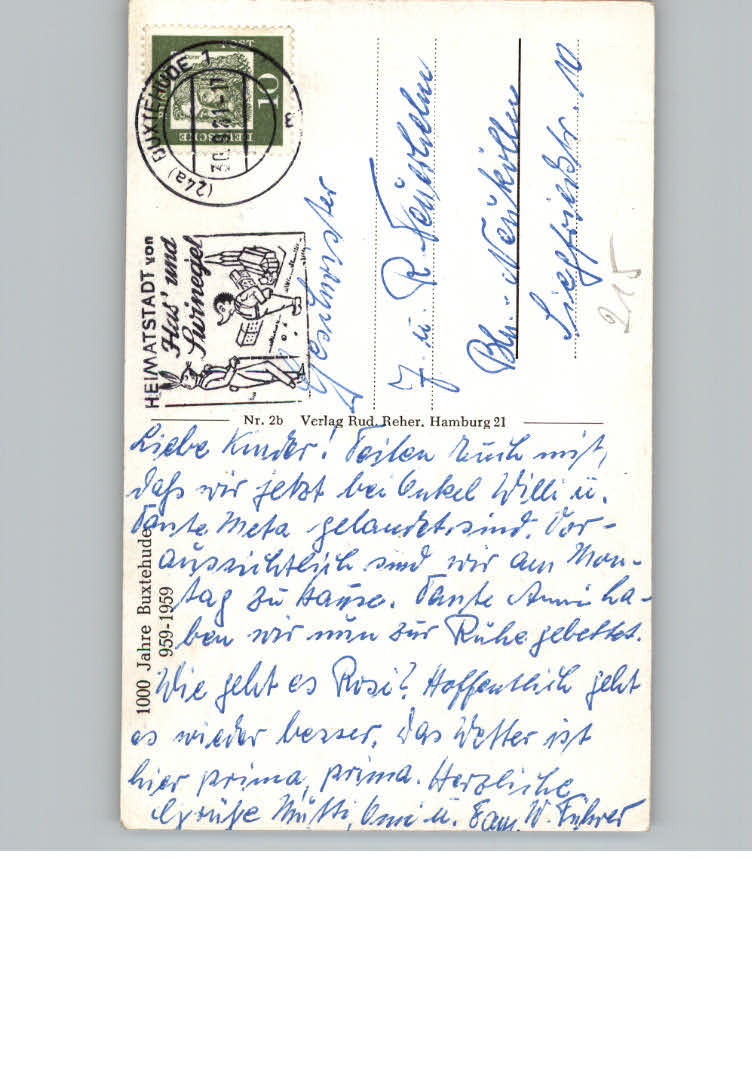 DEUTSCHE
POST
10
(24a) BUXTEHUDE 1
HEIMATSTADT von
Has' und
Swinegel
Geschwister
J. u. R.
Bln.-Neukölln
Siegfriedstr. 10
215
Nr. 2b Verlag Rud. Reher, Hamburg 21
1000 Jahre Buxtehude
959-1959
Liebe Kinder! Teilen Euch mit,
daß wir jetzt bei Onkel Willi u.
Tante Meta gelandet sind. Vor-
aussichtlich sind wir am Mon-
tag zu Hause. Tante Anni ha-
ben wir nun zur Ruhe gebettet.
Wie geht es Rosi? Hoffentlich geht
es wieder besser. Das Wetter ist
hier prima, prima. Herzliche
Grüße Mutti, Omi u. Fam. W. Führer